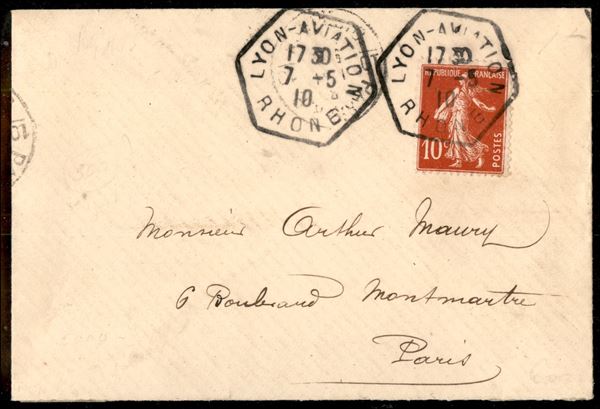 LYON-AVIATION
17 30
7 -5
10
RHONE
LYON-AVIATION
17 30
7 -5
10
RHONE
REPUBLIQUE FRANÇAISE
10c
POSTES
Monsieur Arthur Maury
6 Boulevard Montmartre
Paris